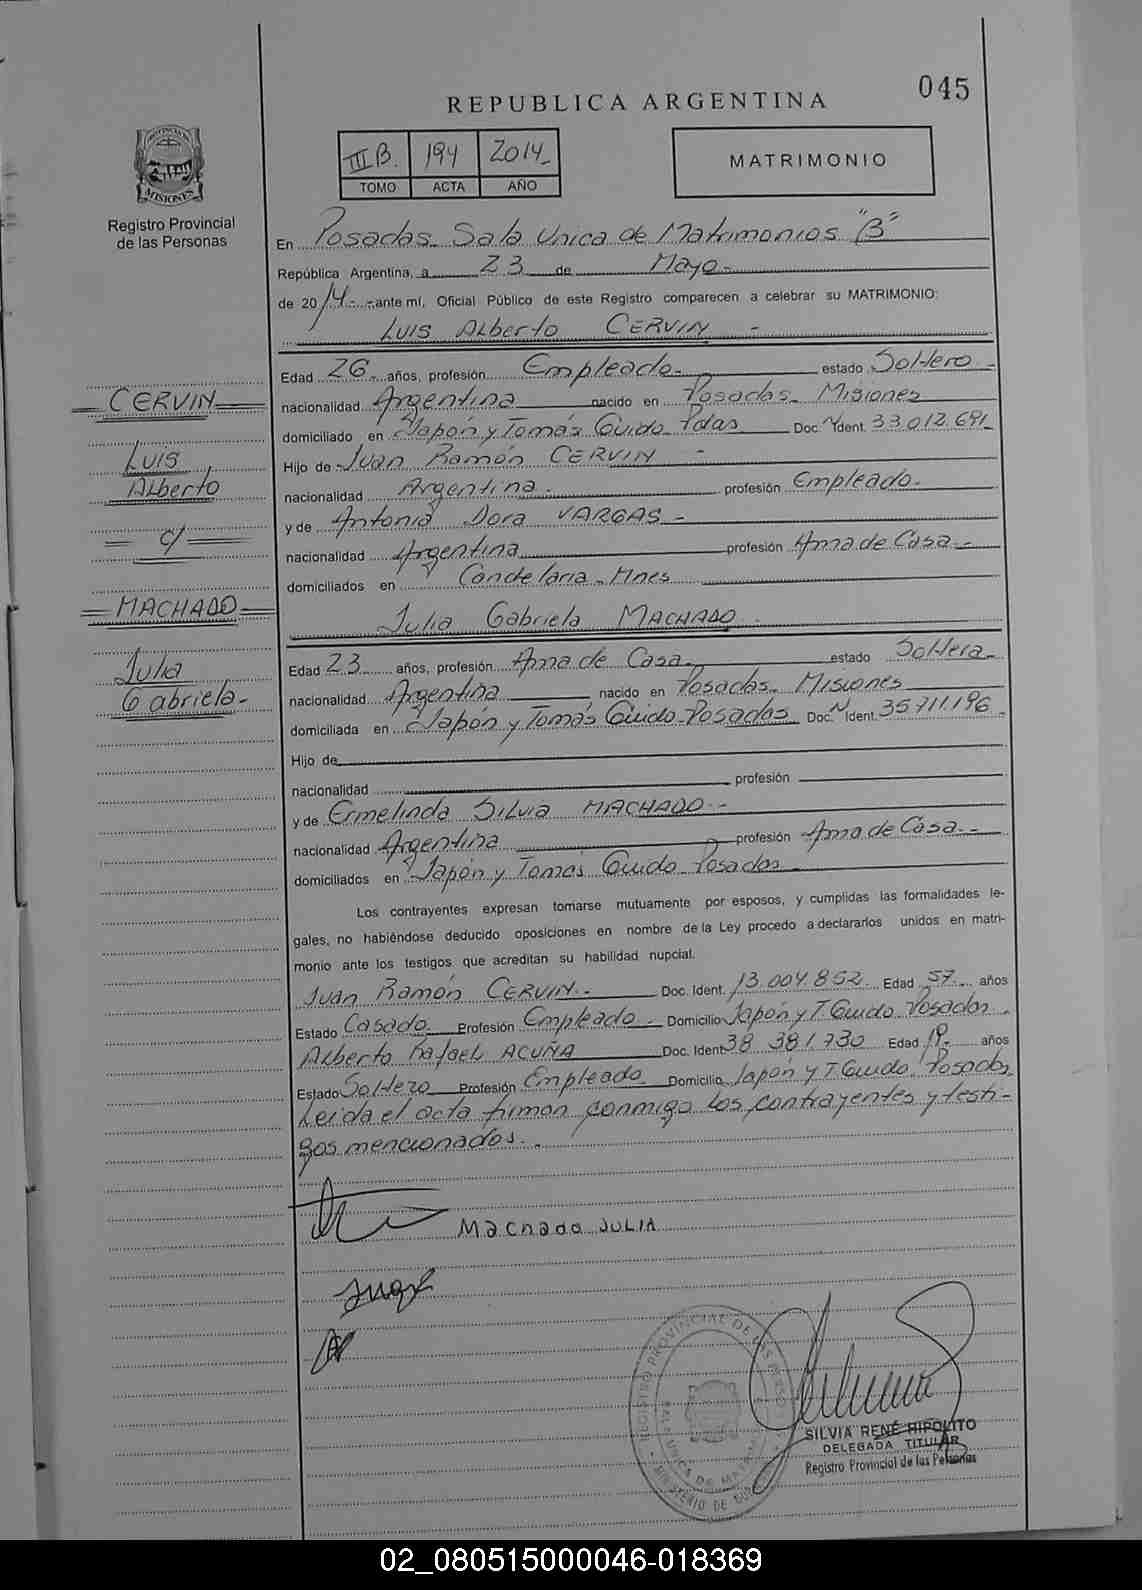 045
REPUBLICA ARGENTINA
III B. 194 2014_
TOMO ACTA AÑO
MATRIMONIO
PROVINCIA DE
MISIONES
Registro Provincial
de las Personas
En Posadas_ Sala Unica de Matrimonios "B"
República Argentina, a 23 de Mayo-
de 2014.- ante mí, Oficial Público de este Registro comparecen a celebrar su MATRIMONIO:
Luis Alberto CERVIN -
Edad 26_ años, profesión Empleado_ estado Soltero_
nacionalidad Argentina nacido en Posadas_ Misiones
domiciliado en Japón y Tomás Guido Pdas Doc. N Ident. 33.012.691_
Hijo de Juan Ramón CERVIN -
nacionalidad Argentina. profesión Empleado.
y de Antonia Dora VARGAS -
nacionalidad Argentina profesión Ama de Casa_
domiciliados en Candelaria_ Mnes
Julia Gabriela MACHADO.
Edad 23 años, profesión Ama de Casa_ estado Soltera_
nacionalidad Argentina nacido en Posadas_ Misiones
domiciliada en Japón y Tomás Guido_Posadas Doc. N Ident. 35711.196
Hijo de
nacionalidad profesión
y de Ermelinda Silvia MACHADO_
nacionalidad Argentina profesión Ama de Casa_
domiciliados en Japón y Tomás Guido_ Posadas
Los contrayentes expresan tomarse mutuamente por esposos, y cumplidas las formalidades le-
gales, no habiéndose deducido oposiciones en nombre de la Ley procedo a declararlos unidos en matri-
monio ante los testigos que acreditan su habilidad nupcial.
Juan Ramón CERVIN_ Doc. Ident. 13.004.852 Edad 57 años
Estado Casado_ Profesión Empleado_ Domicilio Japón y T. Guido Posadas_
Alberto Rafael ACUÑA Doc. Ident 38 381.730 Edad 19_ años
Estado Soltero Profesión Empleado Domicilio Japón y T. Guido Posadas
Leida el acta firman conmigo los contrayentes y testi-
gos mencionados.
CERVIN
Luis
Alberto
c/
MACHADO
Julia
Gabriela-
Machado JULIA
REGISTRO PROVINCIAL DE LAS PERSO
SILVIA RENÉ HIPÓLITO
DELEGADA TITULAR
Registro Provincial de las Personas
02_080515000046-018369